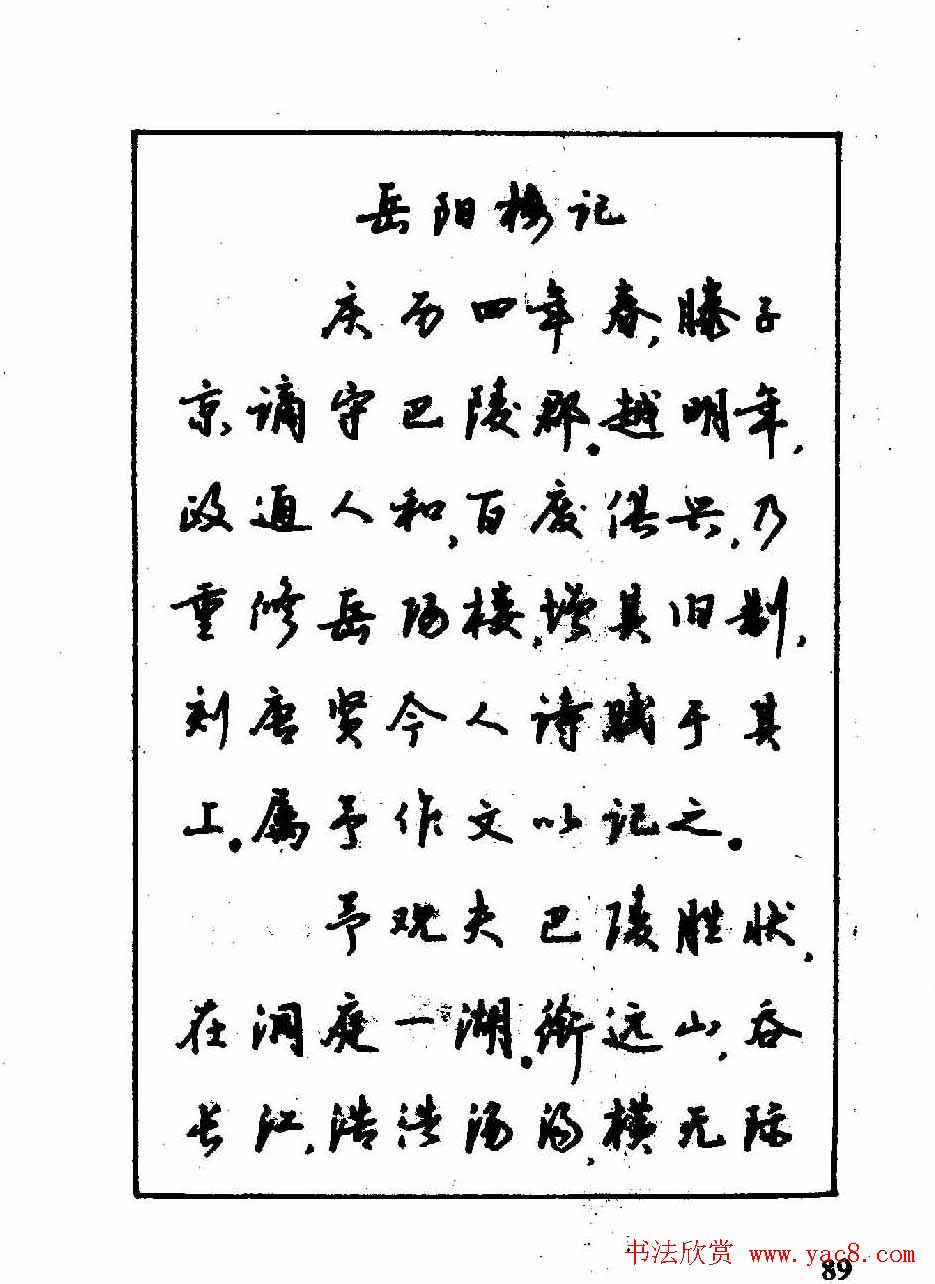 岳阳楼记
庆历四年春,滕子
京谪守巴陵郡。越明年,
政通人和,百废俱兴,乃
重修岳阳楼,增其旧制,
刻唐贤今人诗赋于其
上。属予作文以记之。
予观夫巴陵胜状,
在洞庭一湖。衔远山,吞
长江,浩浩汤汤,横无际
书法欣赏 www.yac8.com
89